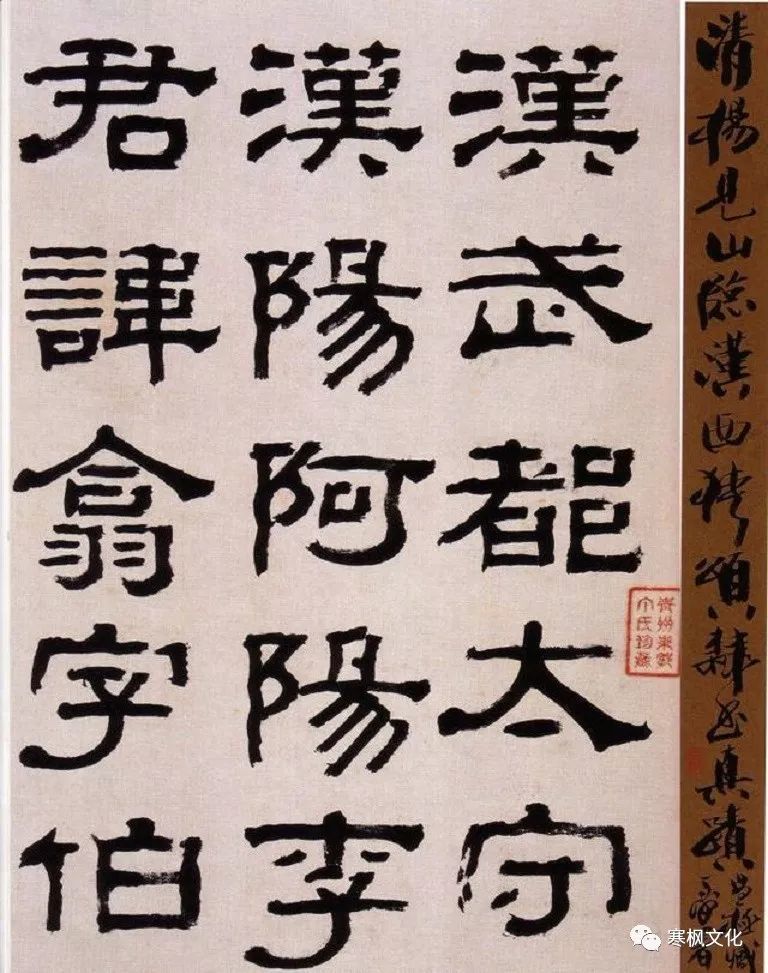 清楊見山臨漢西狹頌隸書真蹟
漢武都太守
漢陽阿陽李
君諱翕字伯
寒枫文化